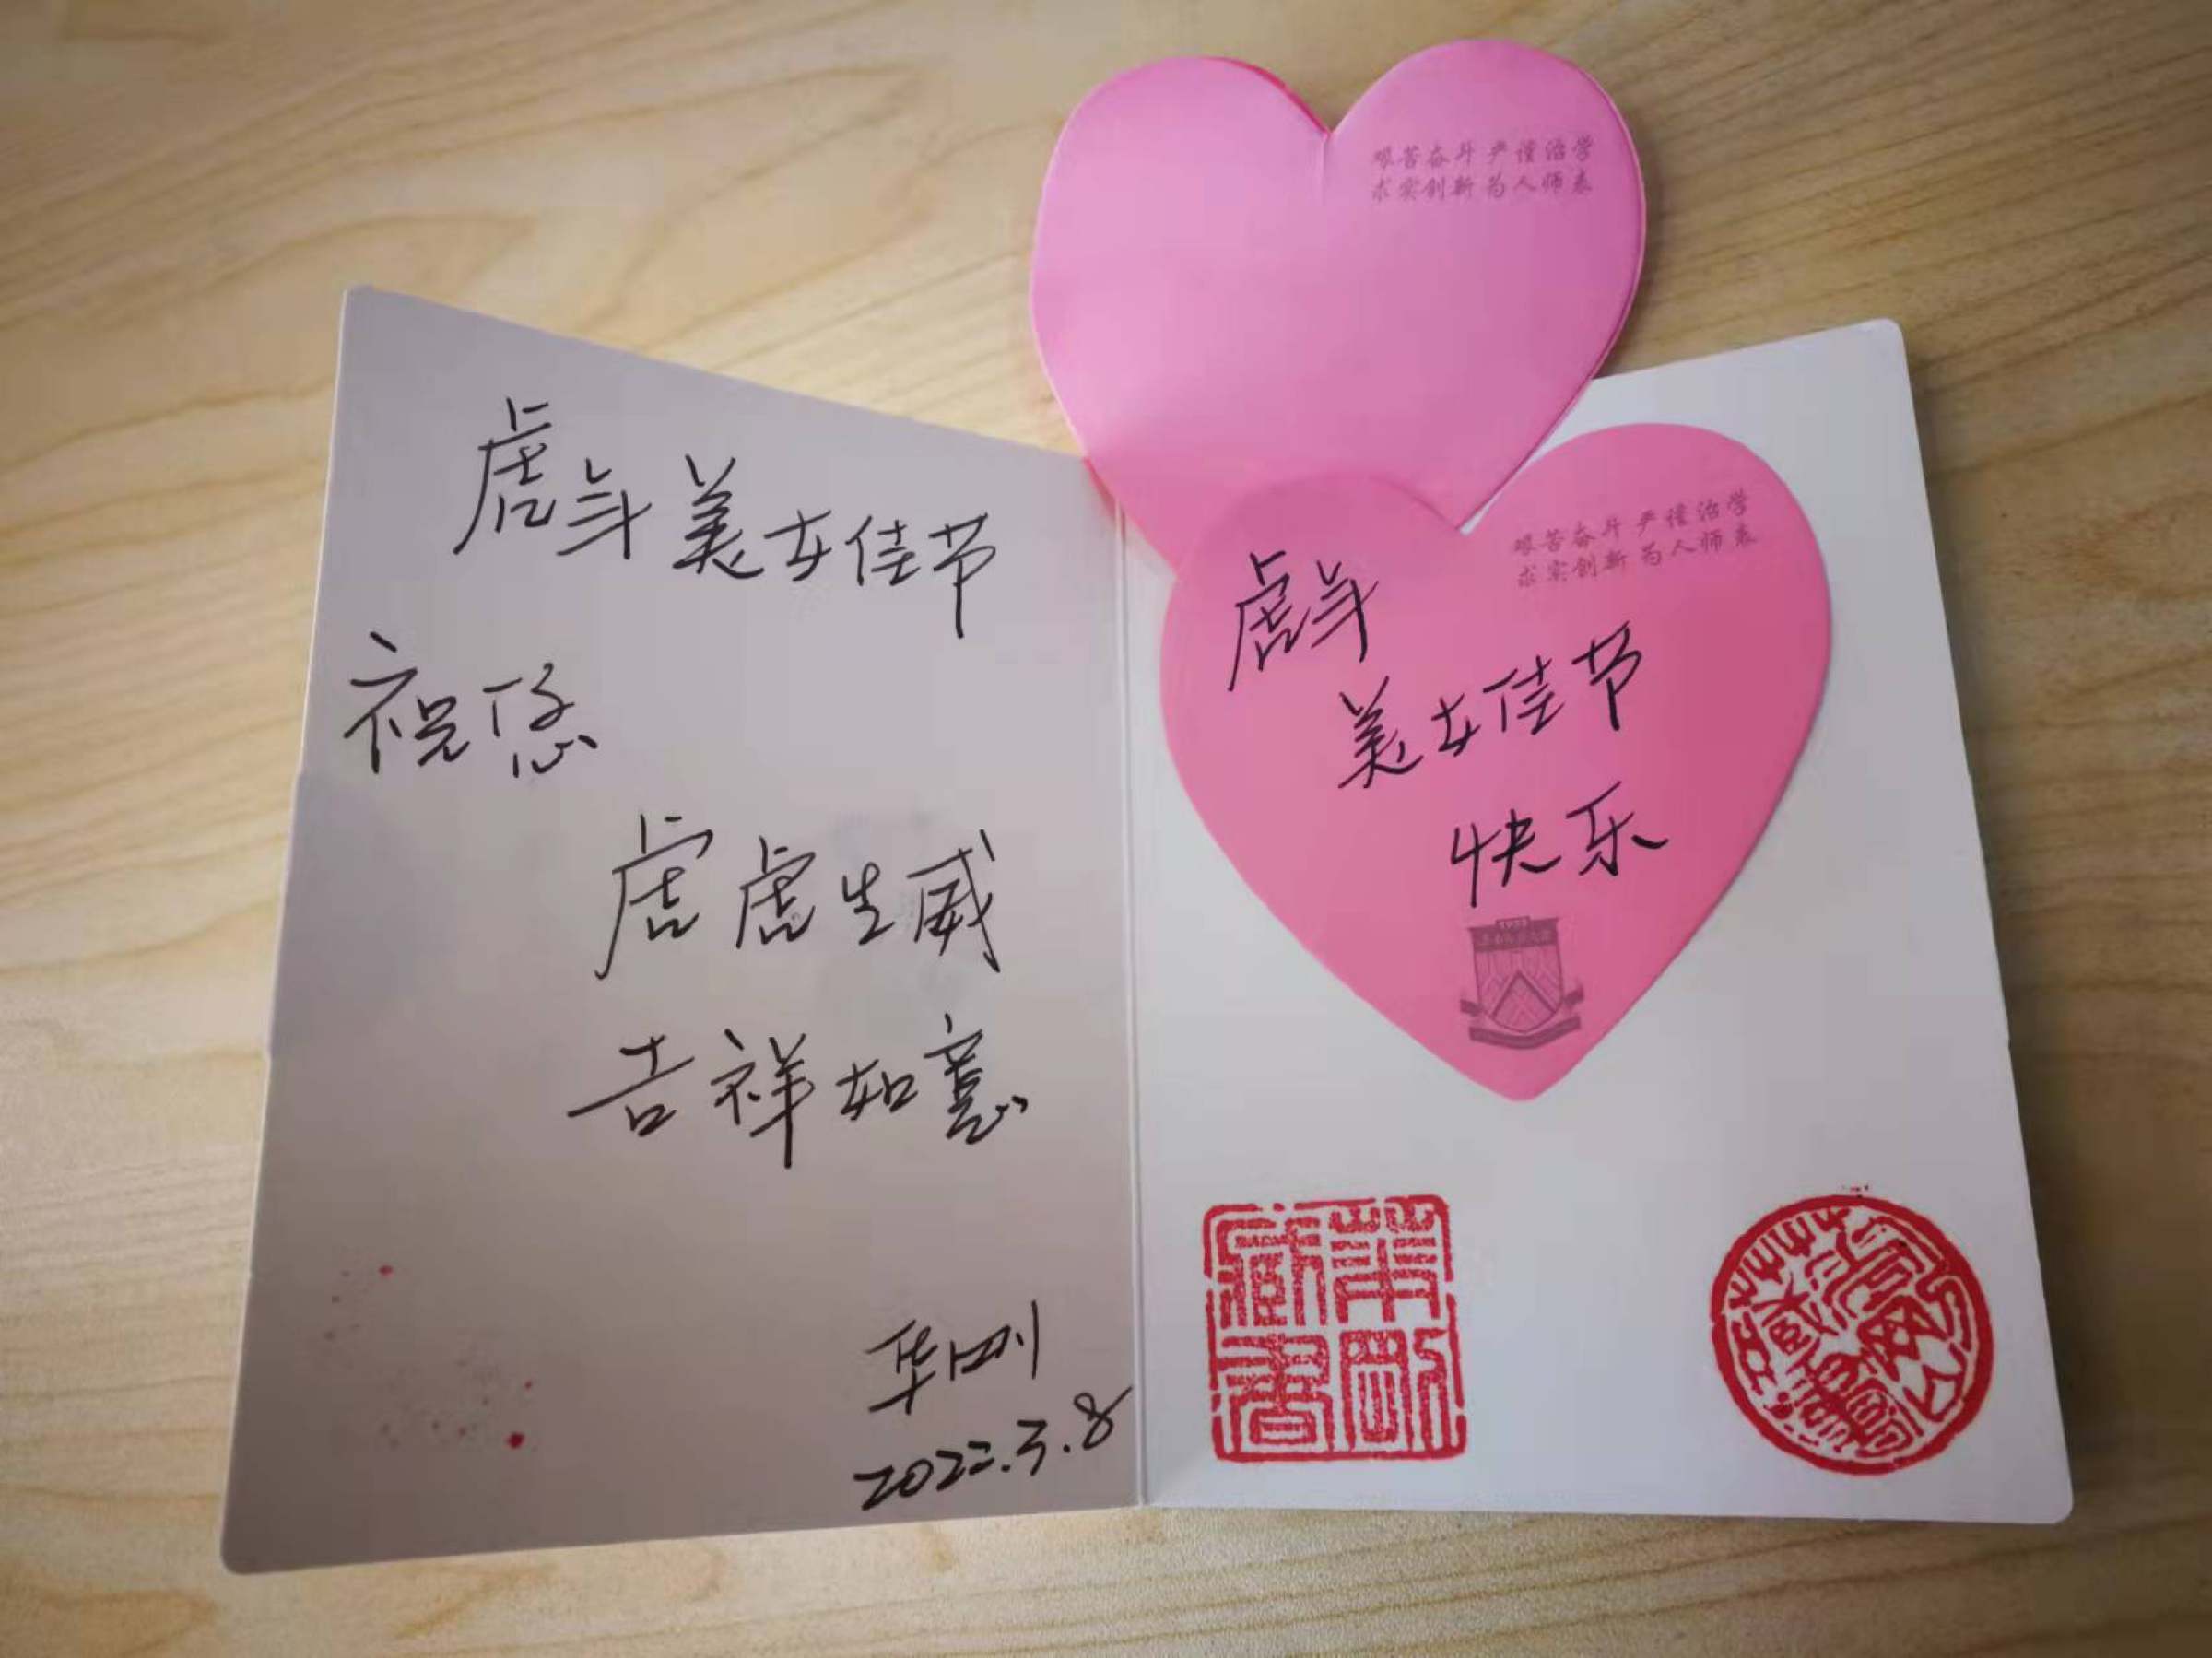 虎年美女佳节
祝您
虎虎生威
吉祥如意
华刚
2022.3.8
艰苦奋斗 严谨治学
求实创新 为人师表
艰苦奋斗 严谨治学
求实创新 为人师表
虎年
美女佳节
快乐
华刚
藏书